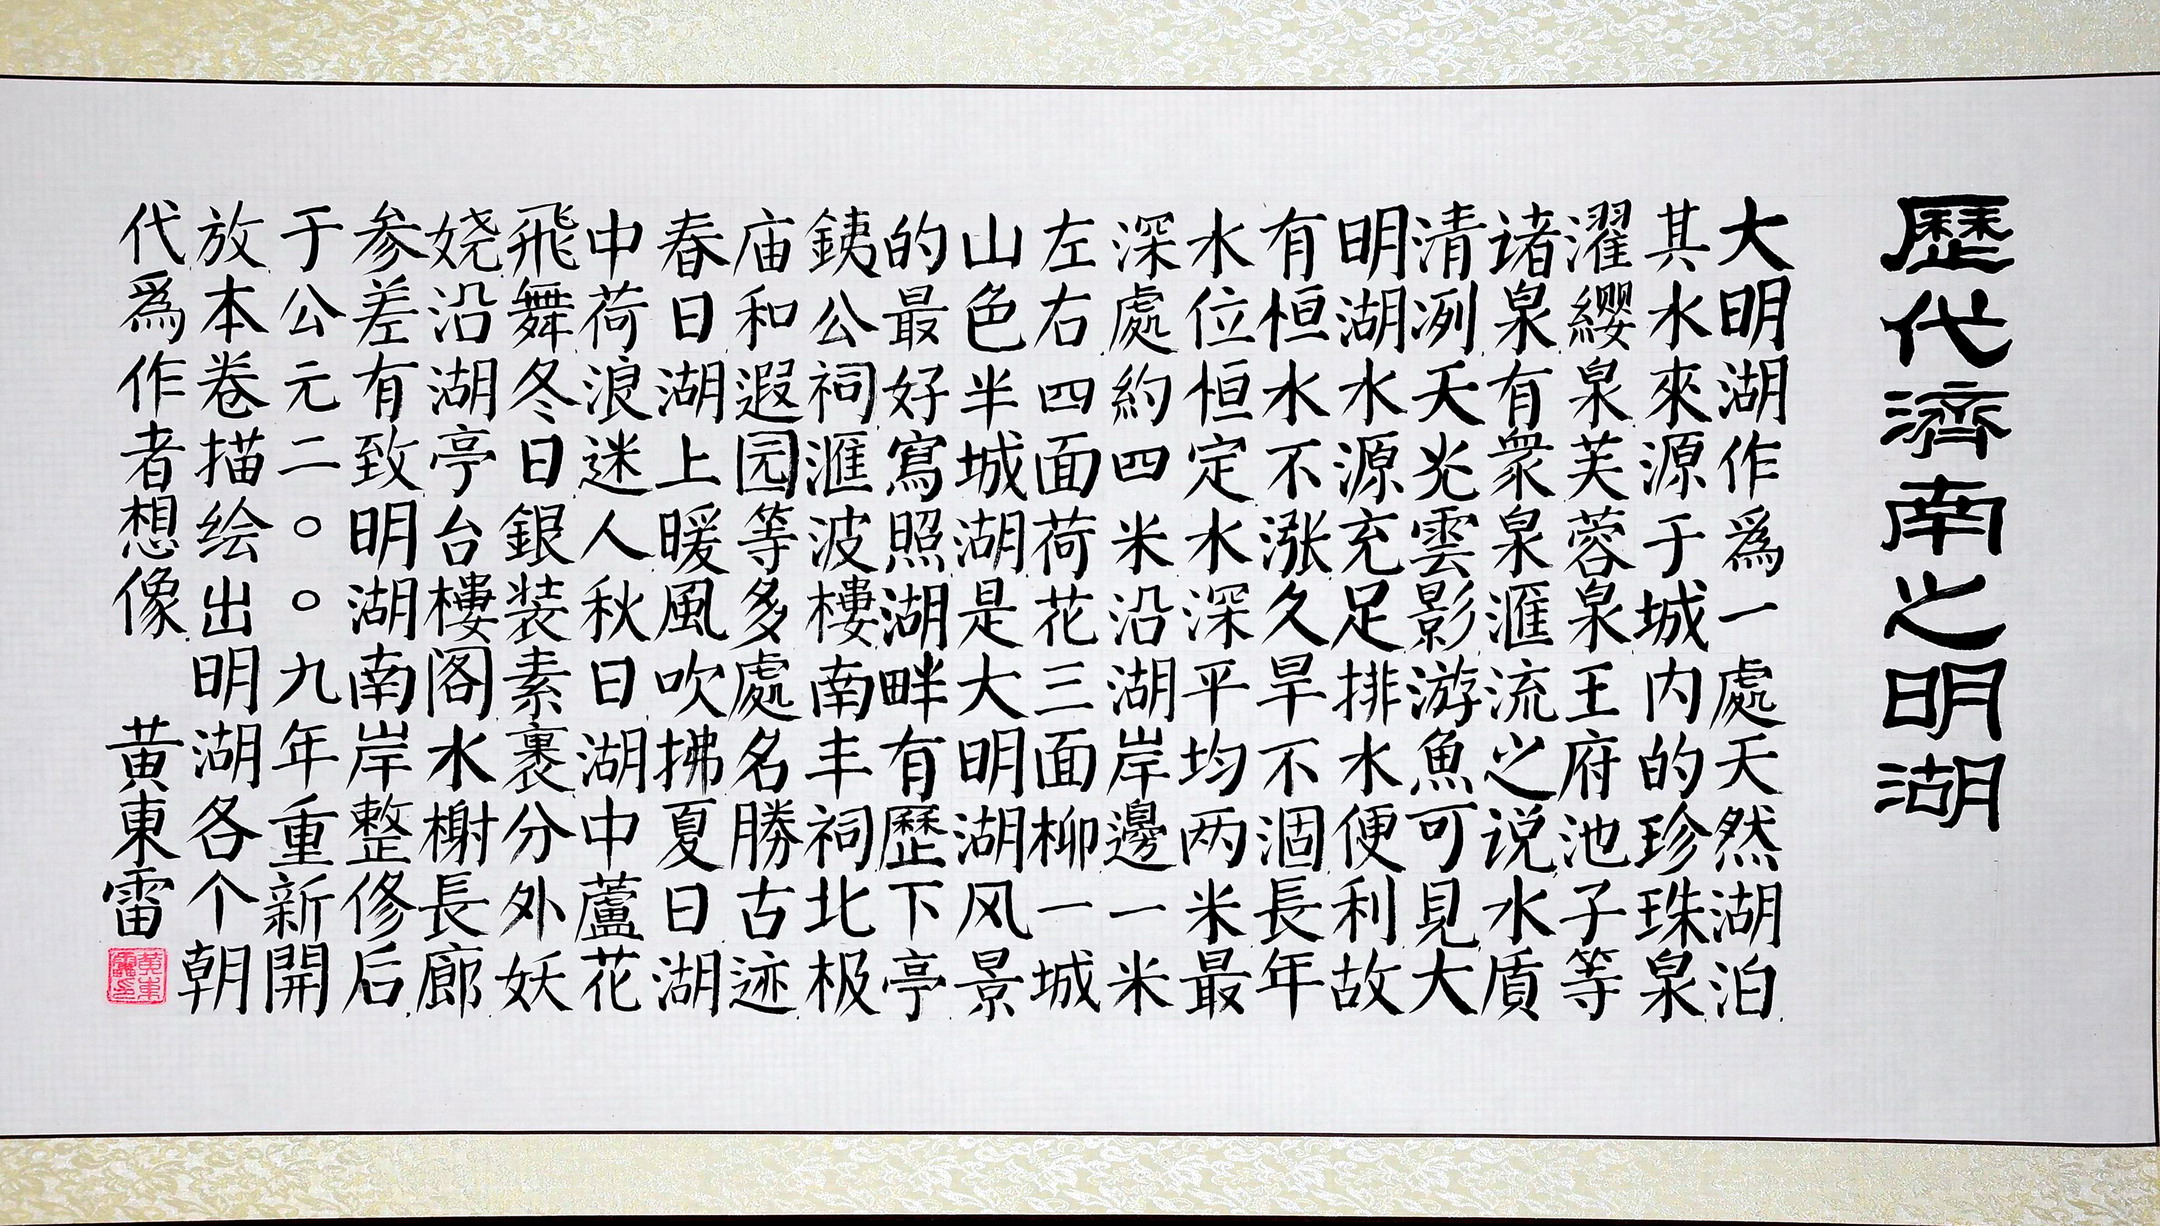 歷代濟南之明湖
大明湖作爲一處天然湖泊
其水來源于城内的珍珠泉
濯纓泉芙蓉泉王府池子等
诸泉有衆泉滙流之说水质
清冽天光雲影游魚可見大
明湖水源充足排水便利故
有恒水不涨久旱不涸長年
水位恒定水深平均两米最
深處約四米沿湖岸邊一米
左右四面荷花三面柳一城
山色半城湖是大明湖风景
的最好寫照湖畔有歷下亭
銕公祠滙波樓南丰祠北极
庙和遐园等多處名勝古迹
春日湖上暖風吹拂夏日湖
中荷浪迷人秋日湖中蘆花
飛舞冬日銀装素裹分外妖
娆沿湖亭台樓阁水榭長廊
参差有致明湖南岸整修后
于公元二〇〇九年重新開
放本卷描绘出明湖各个朝
代爲作者想像 黄東雷